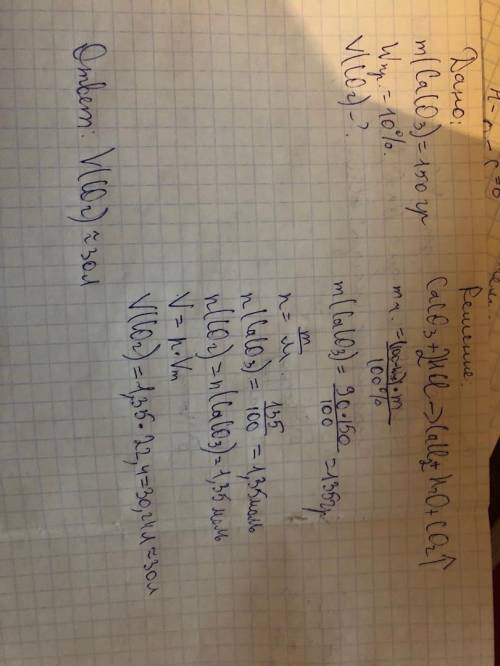 Дано:
m(CaCO3)=150гр
Wпр.=10%.
V(CO2)-?
Решение:
CaCO3+2HCl→CaCl2+H2O+CO2↑
mч.=(100-Wпр)·m/100%
m(CaCO3)=90·150/100=135гр
n=m/M
n(CaCO3)=135/100=1,35моль
n(CO2)=n(CaCO3)=1,35моль
V=n·Vm
V(CO2)=1,35·22,4=30,24л≈30л
Ответ: V(CO2)≈30л